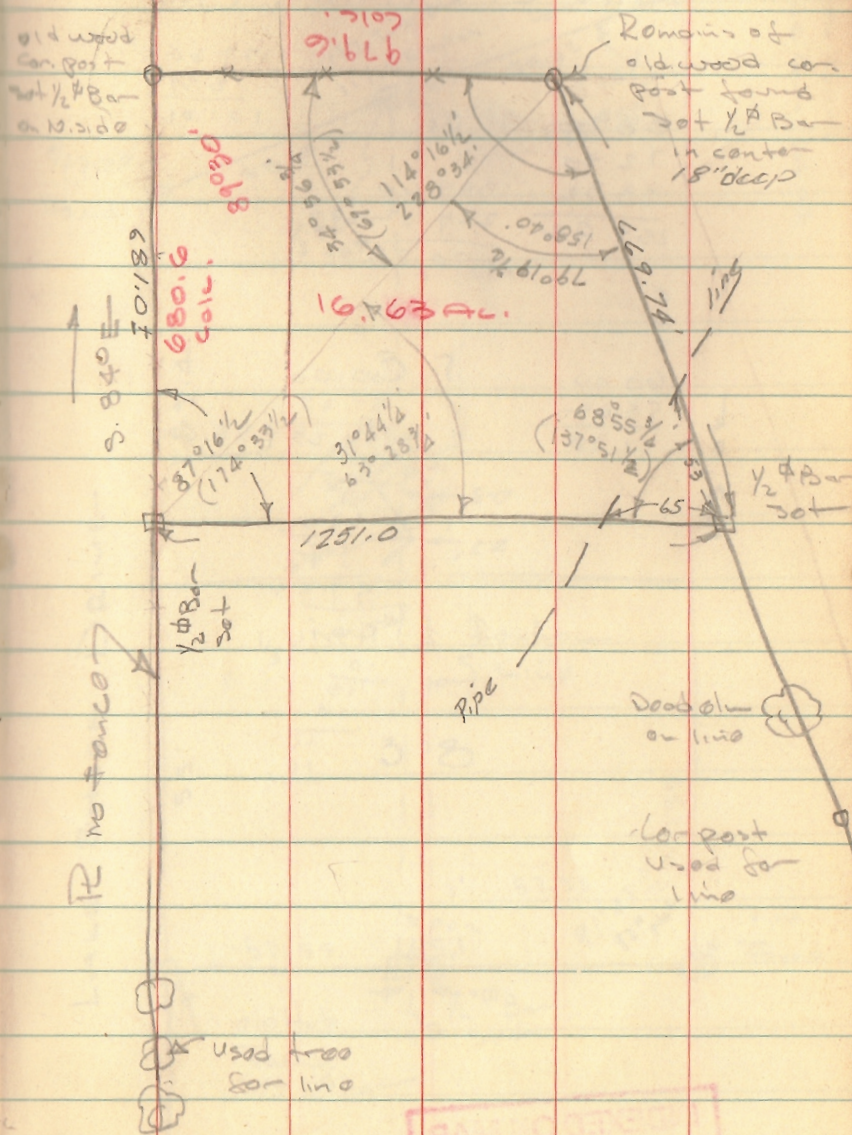 old wood
Cor. post
set 1/2"ϕ Bar
on N. side
979.6
calc.
Remains of
old wood cor.
post found
set 1/2"ϕ Bar
in center
18" deep
89°30'
34° 56 3/4
(69° 53 1/2)
114° 16 1/2'
228° 34'
158° 40'
79° 19 3/4
669.74'
line
681.07
680.6
calc.
16.63 Ac.
S. 84° E
87° 16 1/2
(174° 33 1/2)
31° 44 1/4
63° 28 3/4
68° 55 3/4
(137° 51 1/2)
53
65
1/2"ϕ Bar
set
1251.0
1/2"ϕ Bar
set
Pipe
PL no fence
Dead elm
on line
Cor post
used for
line
Used tree
for line